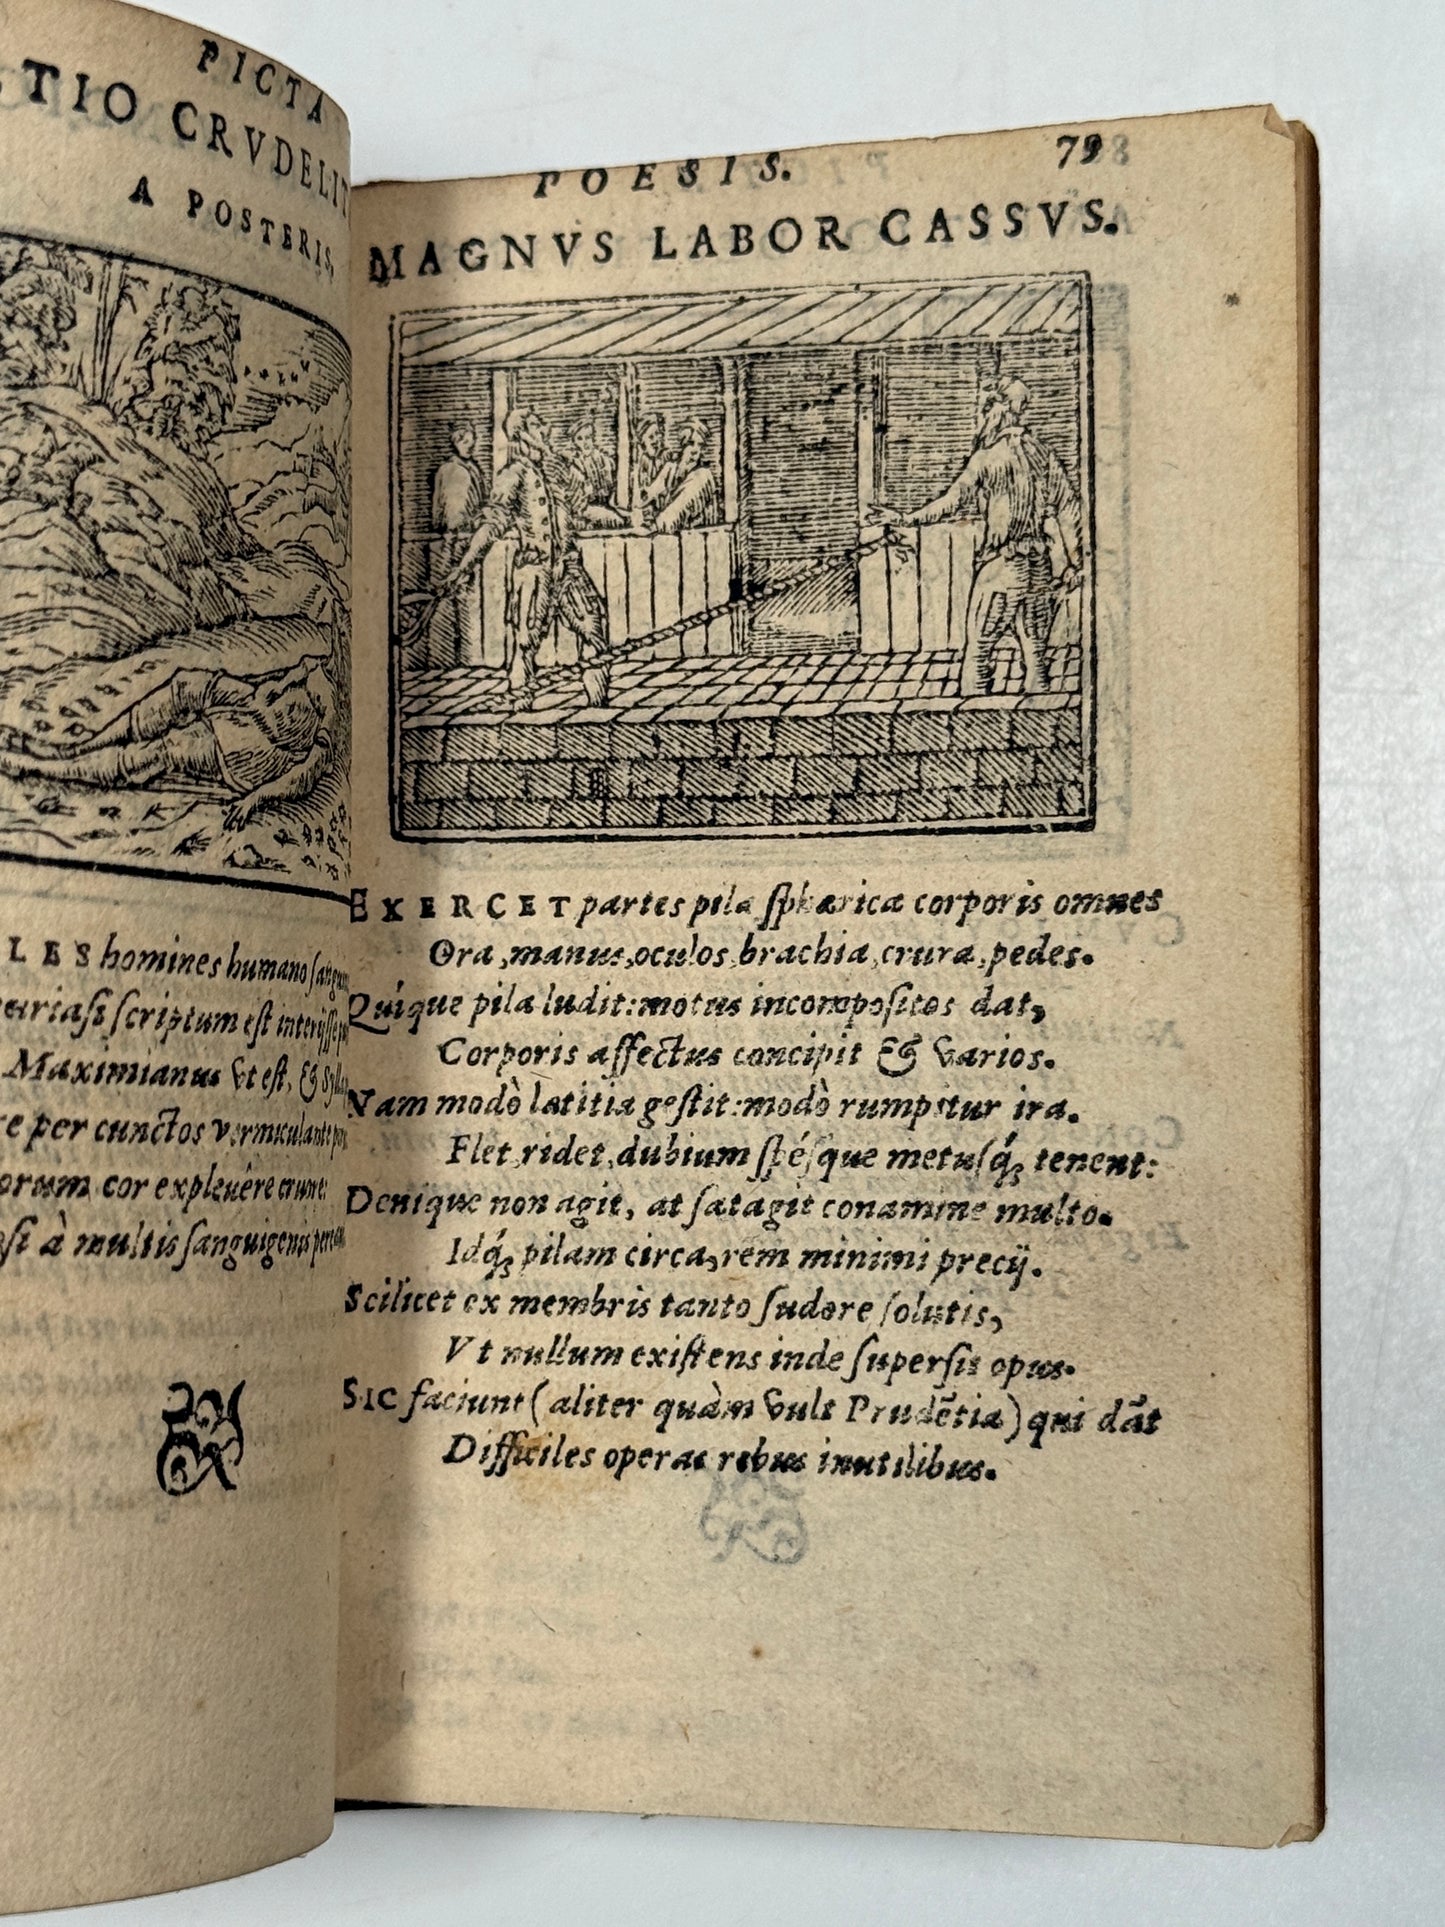 PICTA
TIO CRVDELIT
A POSTERIS,
LES homines humano sangui
ariasi scriptum est interijsse
Maximianus vt est, & Sylla
re per cunctos vermiculante
orum cor explevêre cruore
osi à multis sanguigenis
POESIS. 79
MAGNVS LABOR CASSVS.
EXERCET partes pila sphærica corporis omnes
Ora, manus, oculos, brachia, crura, pedes.
Quíque pila ludit: motus incompositos dat,
Corporis affectus concipit & varios.
Nam modò lætitia gestit: modò rumpitur ira.
Flet, ridet, dubium spésque metusq́; tenent:
Denique non agit, at satagit conamine multo.
Idq́; pilam circa, rem minimi precij.
Scilicet ex membris tanto sudore solutis,
Vt nullum existens inde supersit opus.
SIC faciunt (aliter quàm vult Prudẽtia) qui dãt
Difficiles operas rebus inutilibus.